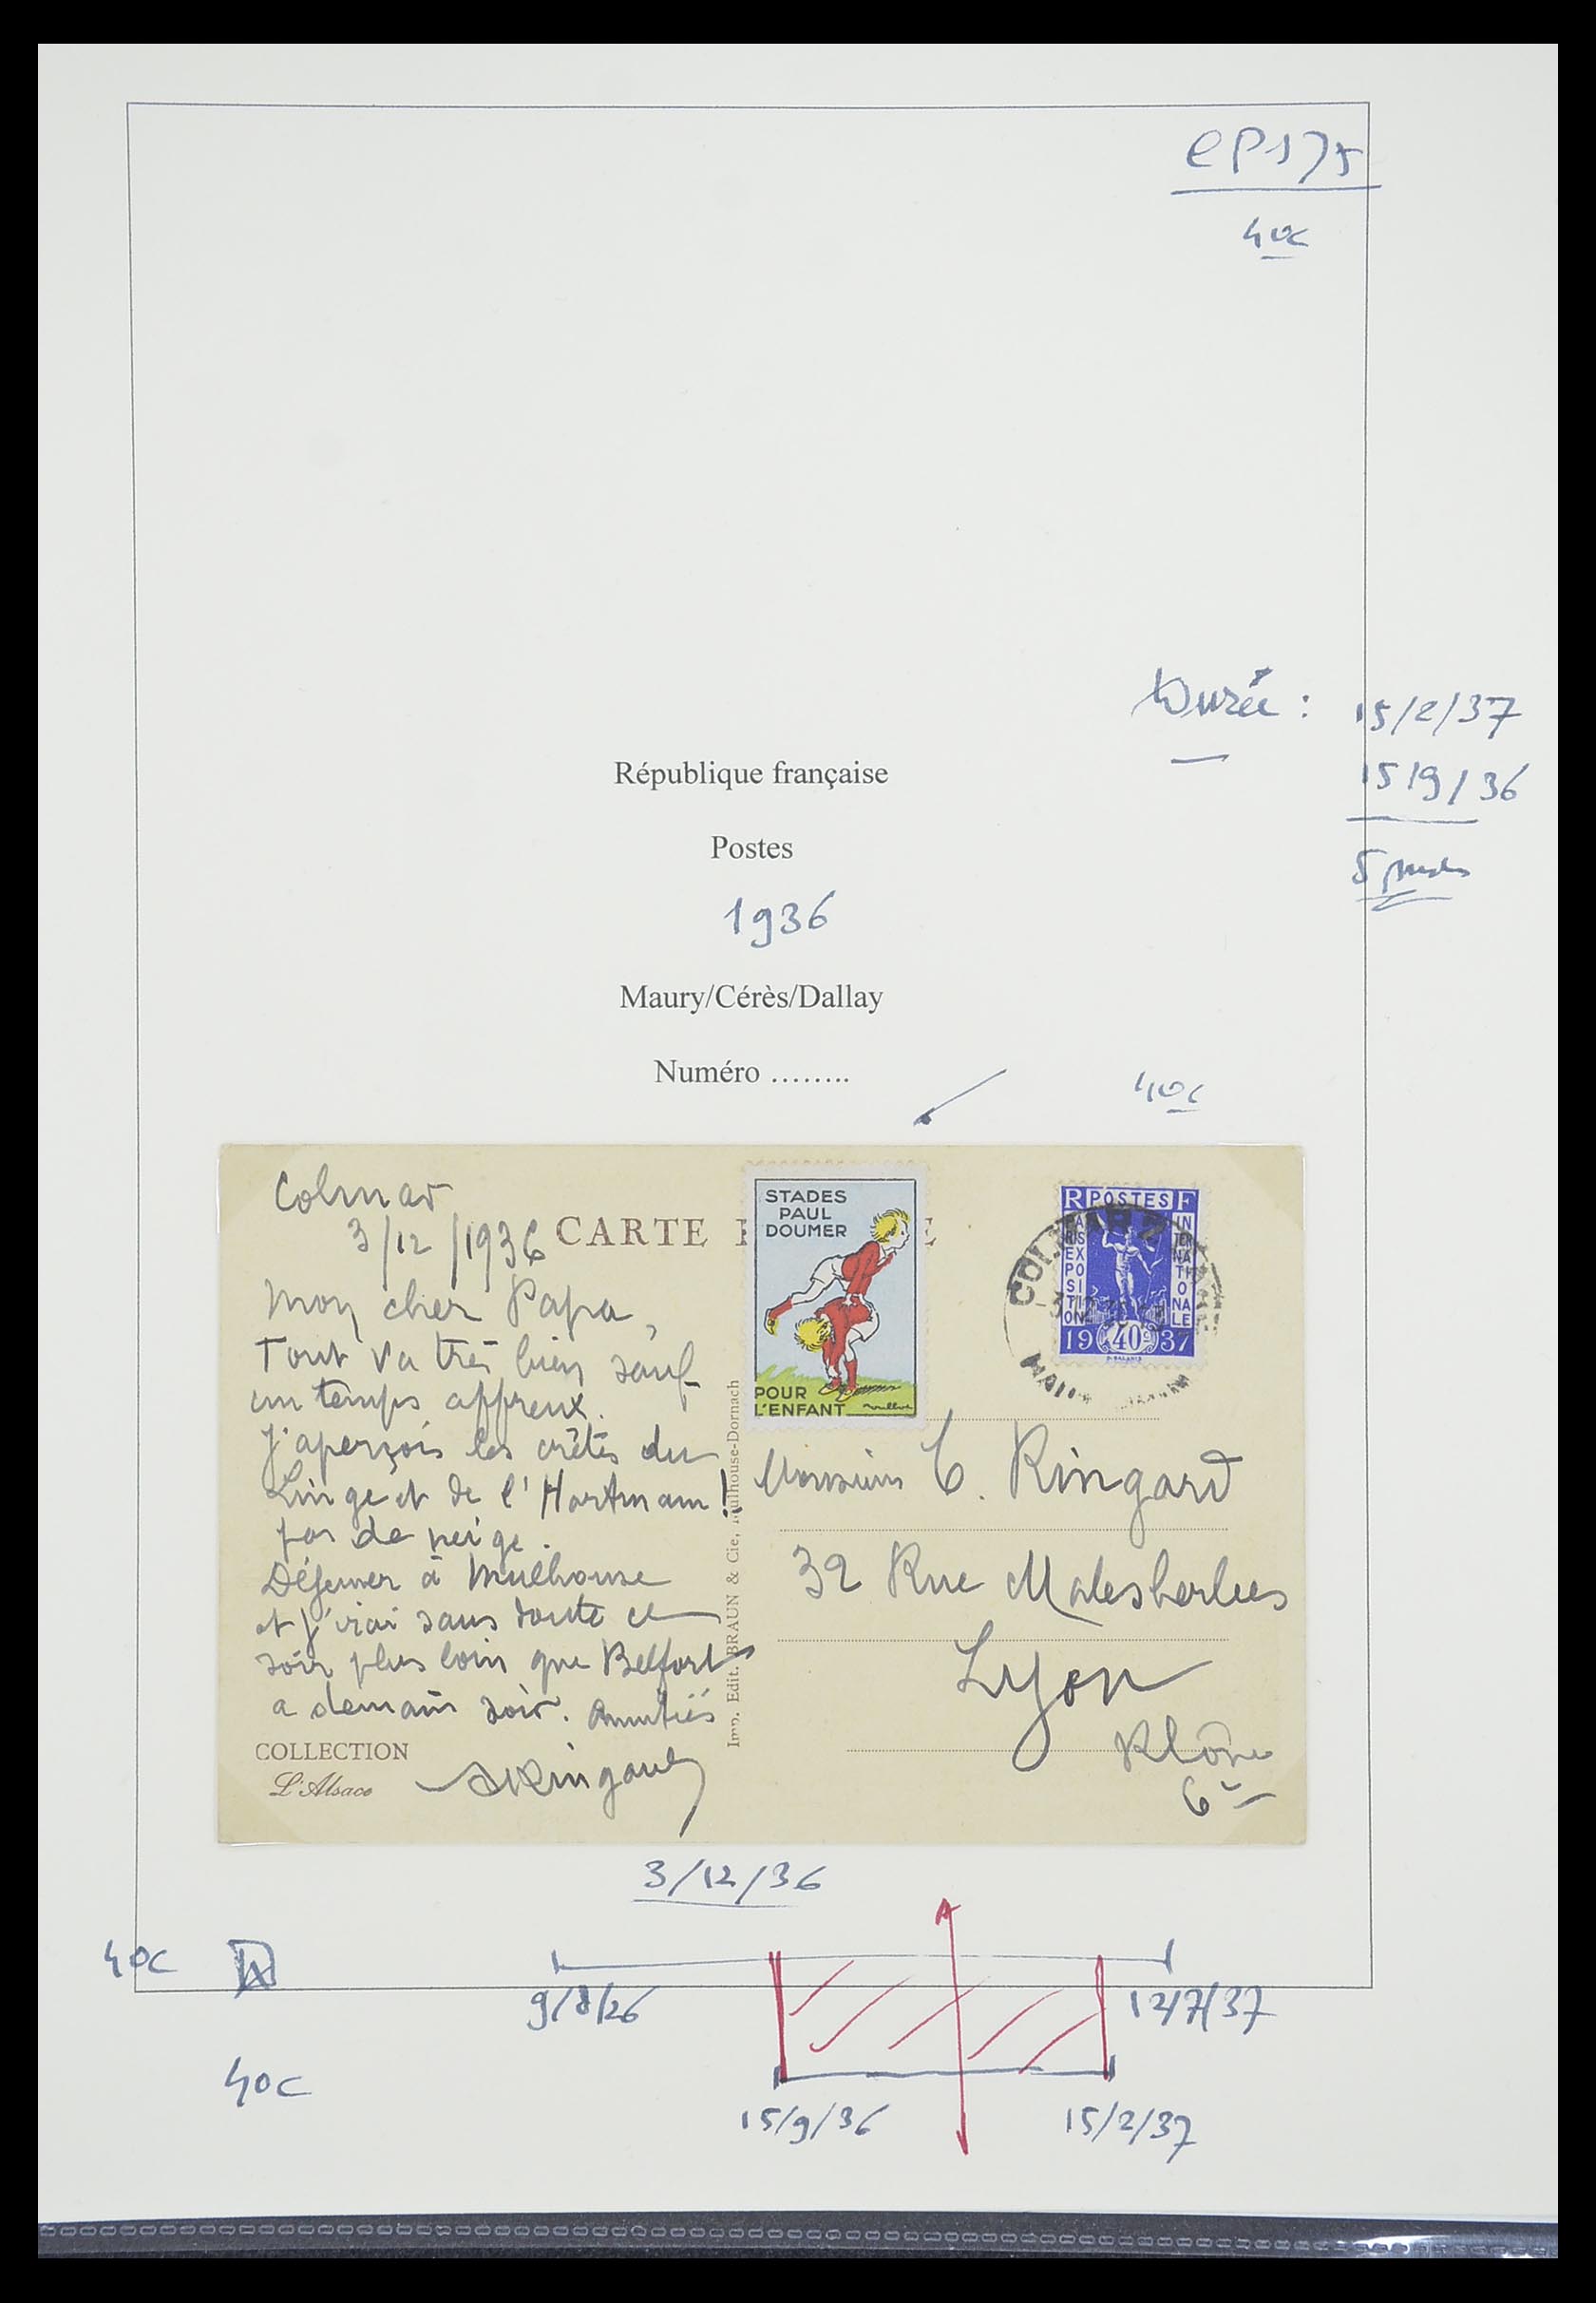 CP175
40c
Durée : 15/2/37
15/9/36
5 mois
République française
Postes
1936
Maury/Cérès/Dallay
Numéro ……..
40c
Colmar
3/12/1936
CARTE
Mon cher Papa,
Tout va très bien sauf
un temps affreux.
J'aperçois les crêtes du
Linge et de l'Hartmann!
pas de neige.
Déjeuner à Mulhouse
et j'irai sans doute ce
soir plus loin que Belfort
a demain soir. Amitiés
COLLECTION
L'Alsace
Imp. Edit. BRAUN & Cie, Mulhouse-Dornach
STADES
PAUL
DOUMER
POUR
L'ENFANT
RF POSTES
PARIS EXPOSITION INTERNATIONALE
19 40c 37
COLMAR
Monsieur C. Ringard
32 Rue Malesherbes
Lyon
Rhône
6e
3/12/36
40c
9/8/26 12/7/37
40c
15/9/36 15/2/37